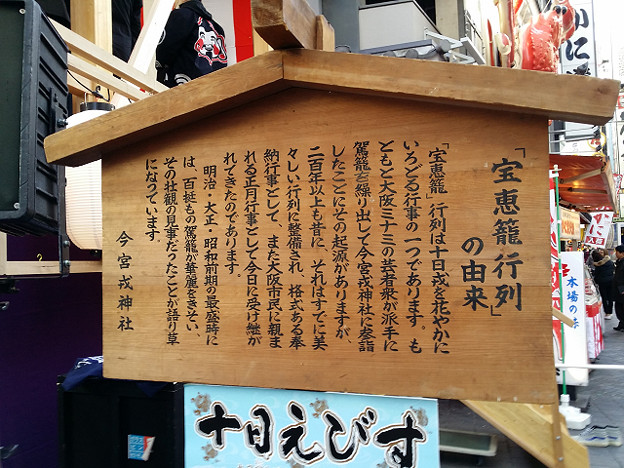 「宝恵籠行列」
の由来
「宝恵籠」行列は十日戎を花やかに
いろどる行事の一つであります。も
ともと大阪ミナミの芸者衆が派手に
駕籠を繰り出して今宮戎神社に参詣
したことにその起源がありますが、
二百年以上も昔に、それはすでに美
々しい行列に整備され、格式ある奉
納行事として、また大阪市民に親ま
れる正月行事として今日に受け継が
れてきたのであります。
明治・大正・昭和前期の最盛時に
は、百挺もの駕籠が華麗をきそい、
その壮観の見事だったことが語り草
になっています。
今宮戎神社
十日えびす
かに道
本場の味